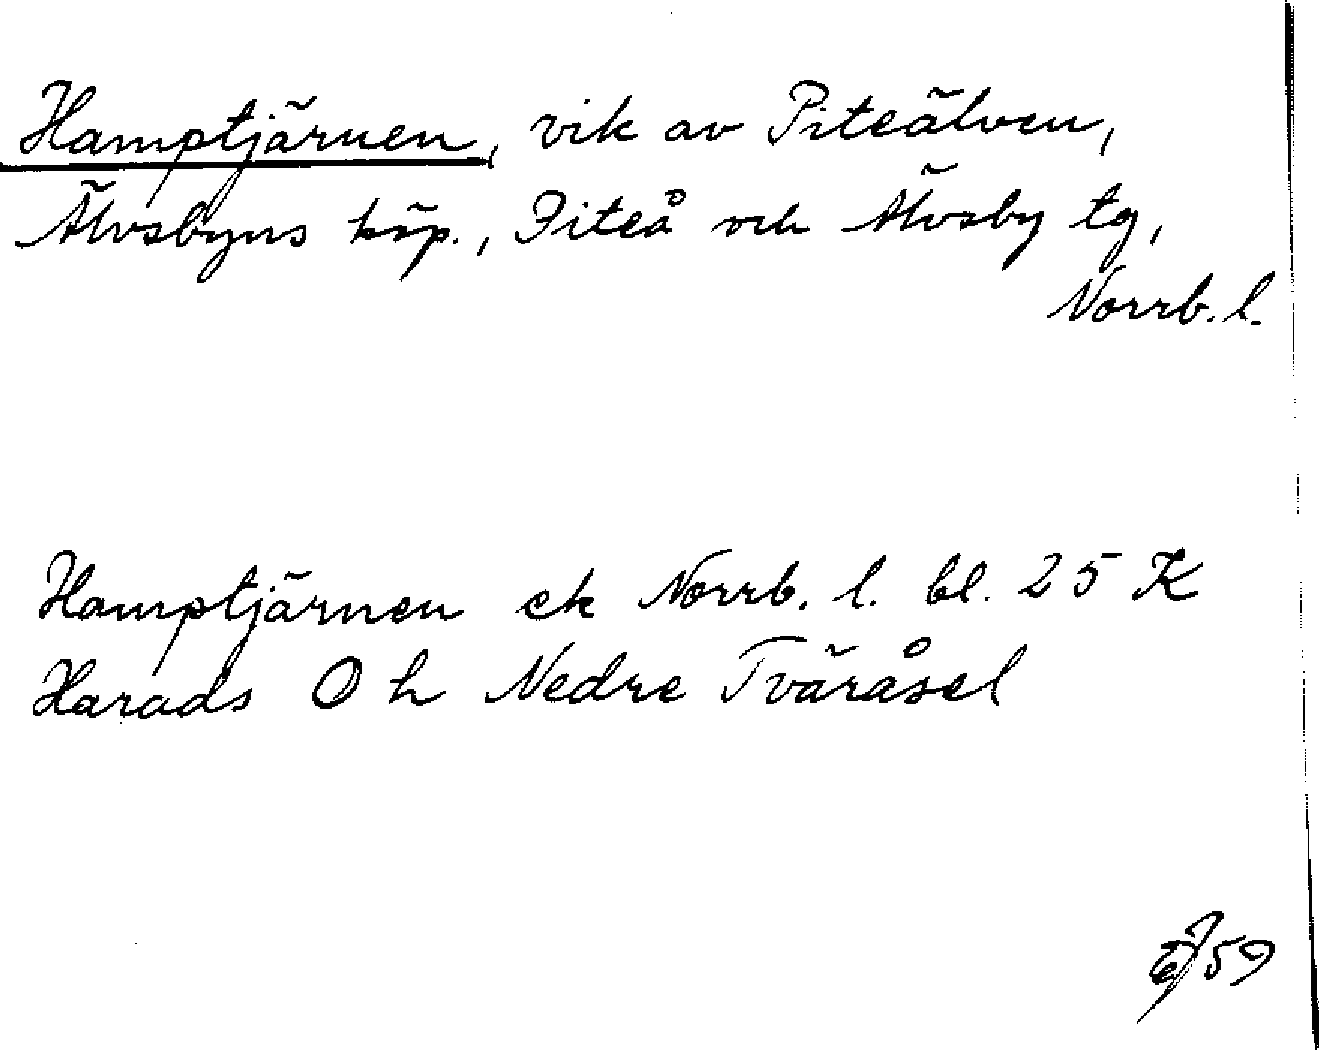 Hamptjärnen, vik av Piteälven,
Älvsbyns köp., Piteå och Älvsby tg,
Norrb. l.
Hamptjärnen ek Norrb. l. bl. 25 K
Harads O h Nedre Tväråsel
59